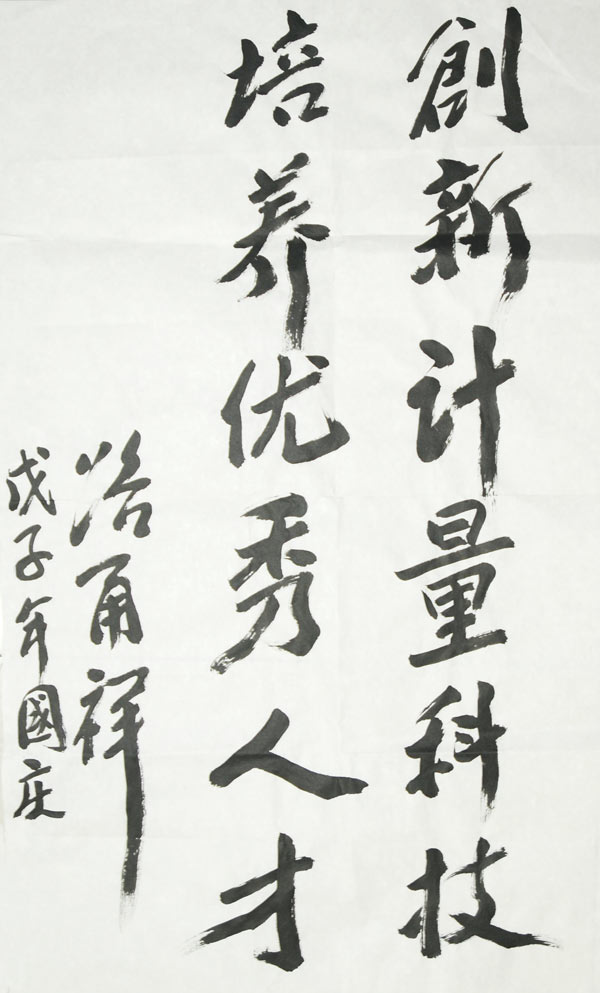 創新计量科技
培养优秀人才
路甬祥
戊子年國庆